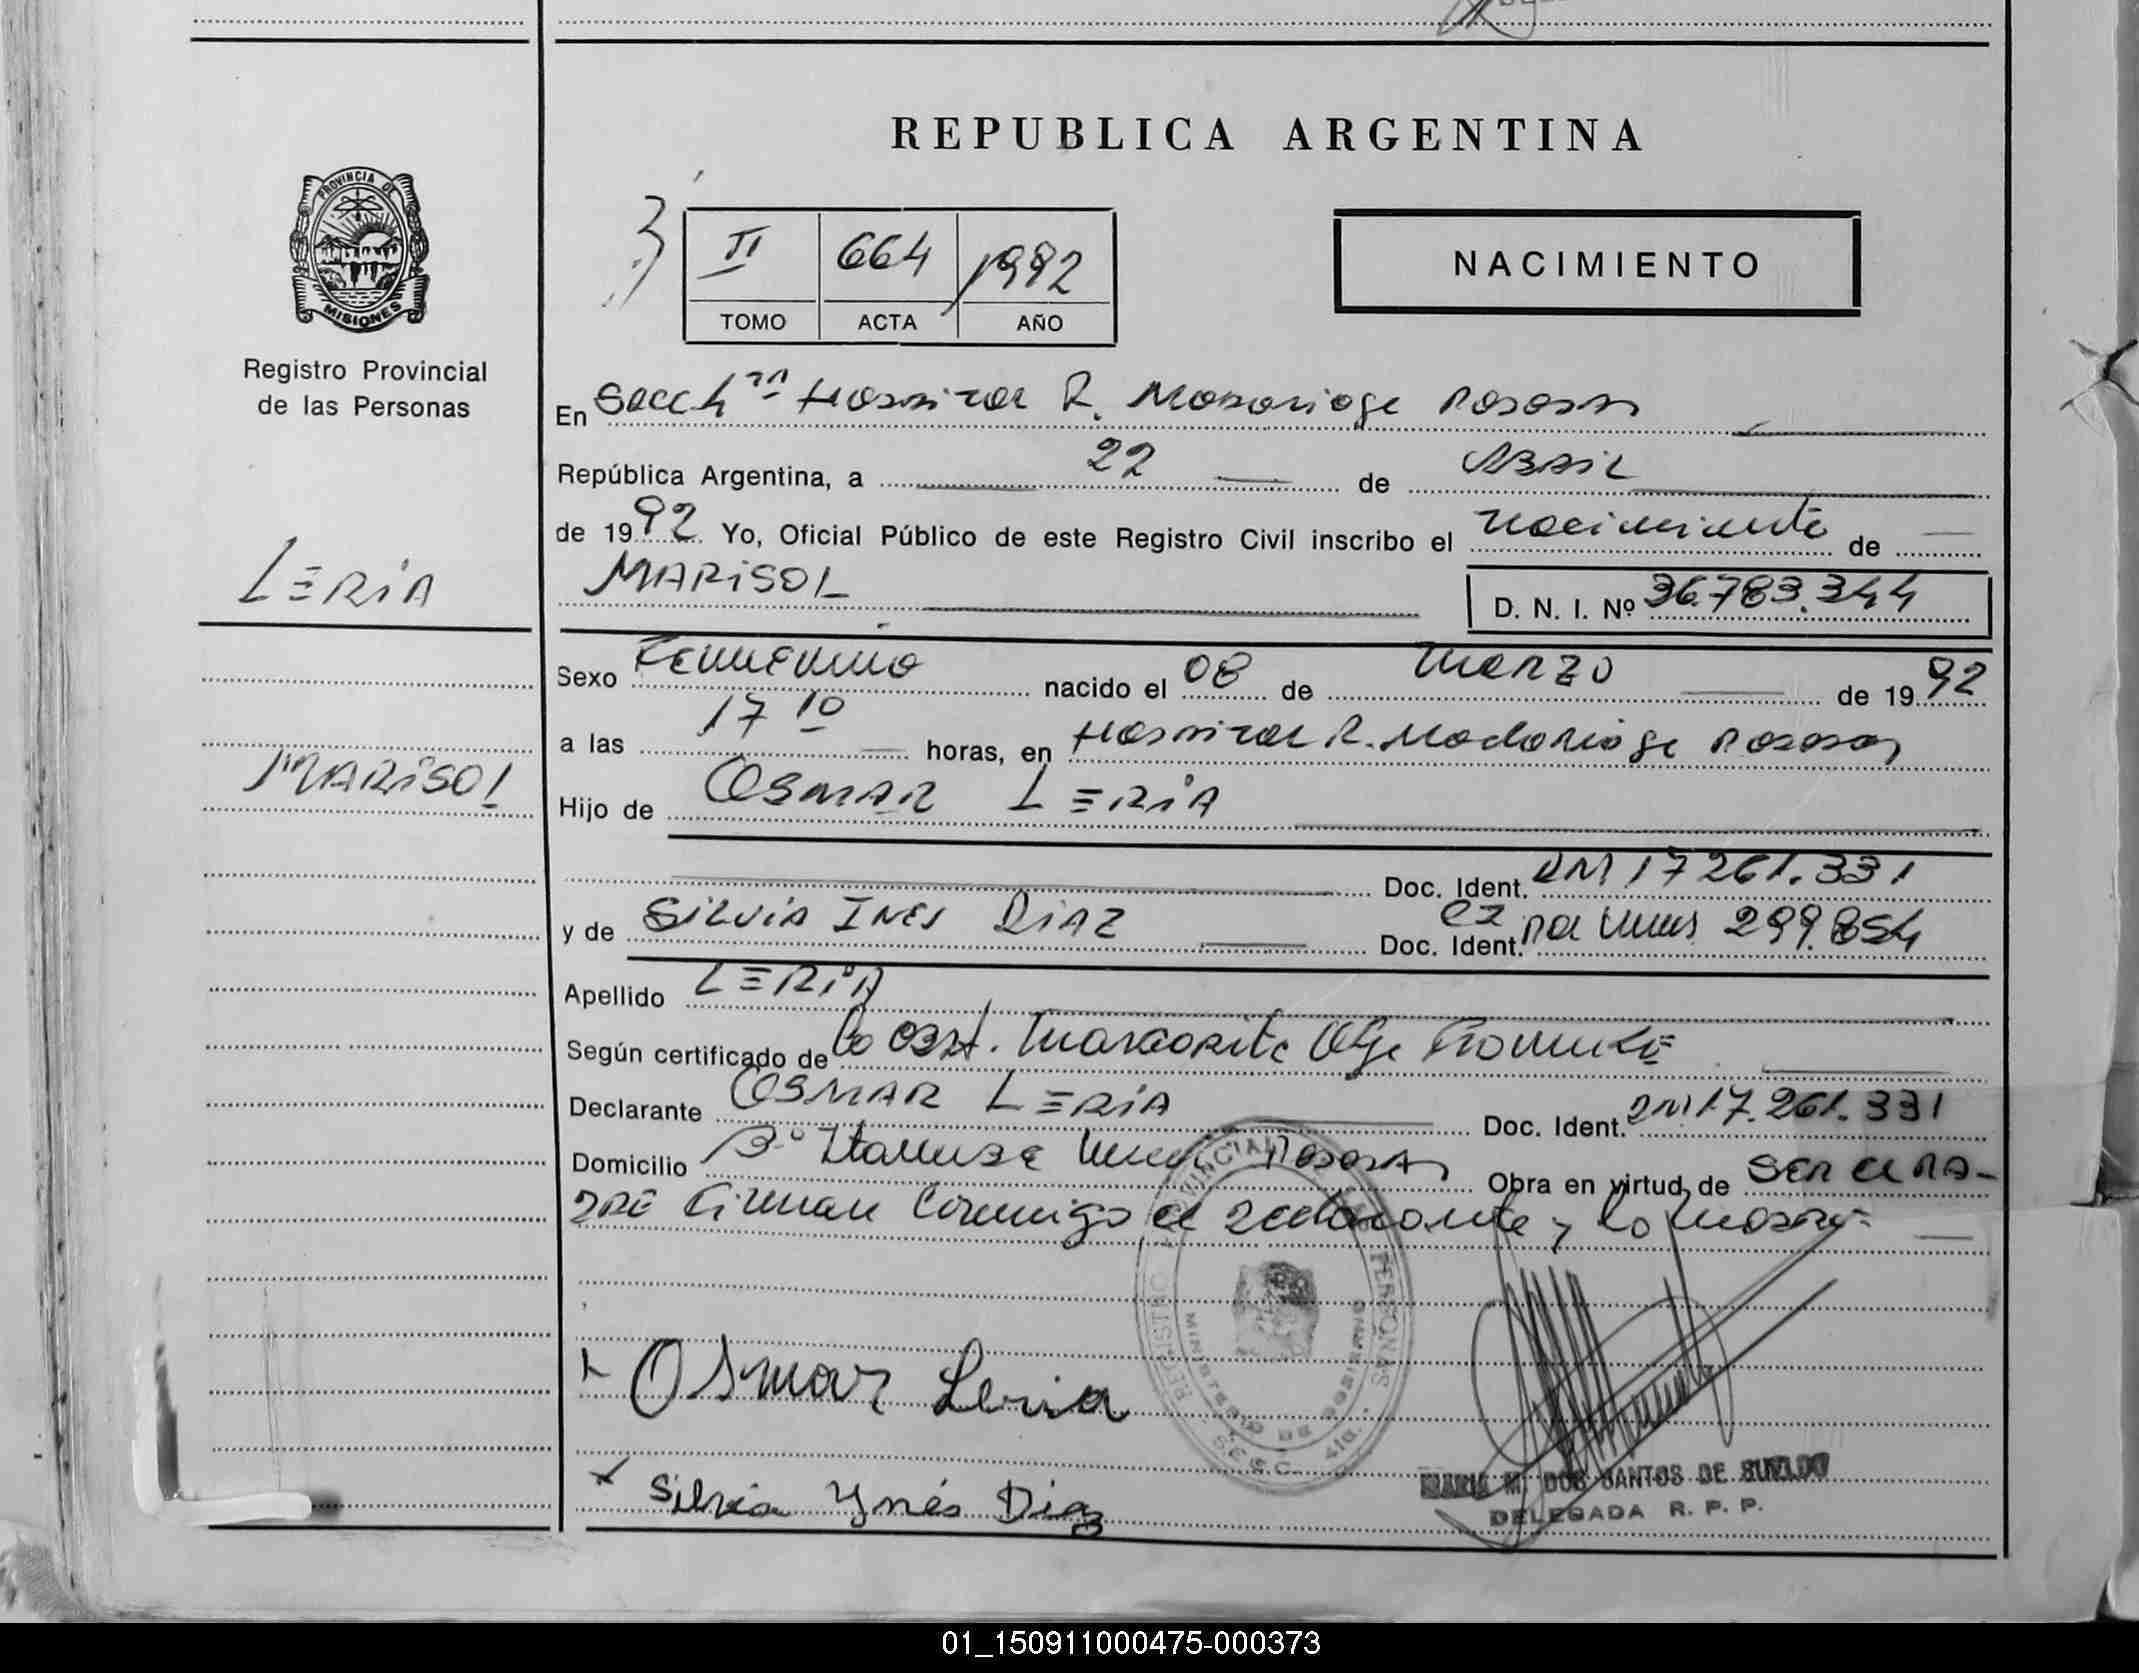 REPUBLICA ARGENTINA
PROVINCIA DE
MISIONES
Registro Provincial
de las Personas
II 664 1992
TOMO ACTA AÑO
NACIMIENTO
En Secc Hospital R. Madariaga Posadas
República Argentina, a 22 de Abril
de 1992 Yo, Oficial Público de este Registro Civil inscribo el nacimiento de
LERIA
MARISOL
D. N. I. Nº 36.783.344
Sexo Femenino nacido el 08 de marzo de 1992
a las 17 10 horas, en Hospital R. Madariaga Posadas
MARISOL
Hijo de OSMAR LERIA
Doc. Ident. DNI 17261.331
y de SILVIA INES DIAZ Doc. Ident. 299.854
Apellido LERIA
Según certificado de la Obst. Margarita Olga
Declarante OSMAR LERIA Doc. Ident. DNI 17.261.331
Domicilio Bº Posadas Obra en virtud de ser el pa-
dre Firman conmigo el declarante y la madre
REGISTRO PROVINCIAL DE LAS PERSONAS
MINISTERIO DE GOBIERNO
Osmar Leria
Silvia Ynés Diaz
MARIA M. DOS SANTOS DE SUELDO
DELEGADA R. P. P.
01_150911000475-000373